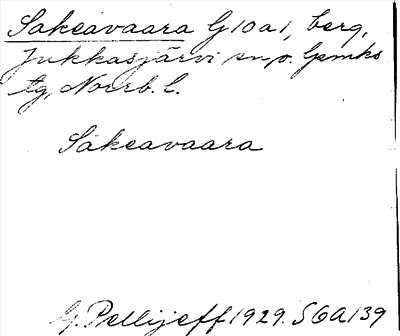 Sakeavaara G10a1, berg,
Jukkasjärvi sn, o. Gemks
tg, Norrb. l.
Sakeavaara
G. Pellijeff 1929. SOA 139